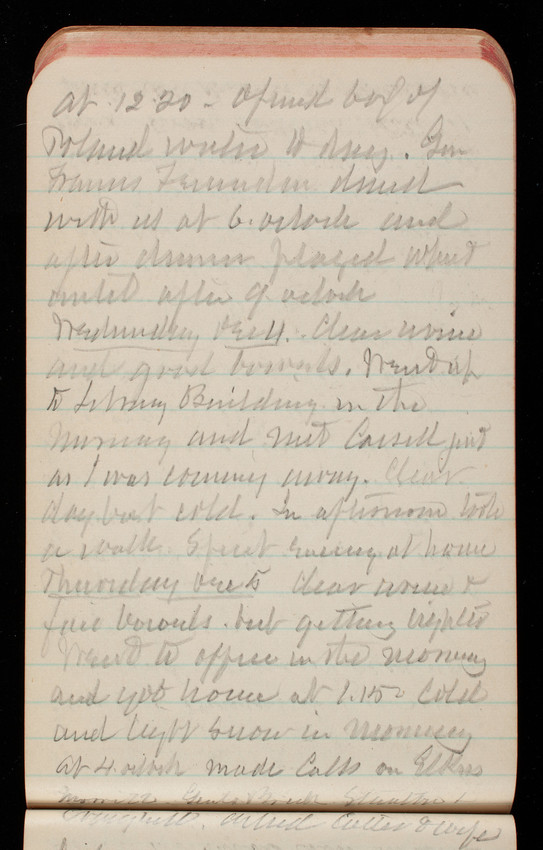 at 12.20 - opened box of
Poland water to day. Gen
Francis Fessenden dined
with us at 6. oclock and
after dinner played whist
until after 9 oclock
Wednesday Dec 4. Clear urine
and good bowels. Went up
to Library Building in the
morning and met Casell just
as I was coming away. Clear
day but cold. In afternoon took
a walk. Spent evening at home
Thursday Dec 5 clear urine &
fair bowels. but getting
Went to office in the morning
and got home at 1.15 - Cold
and light snow in morning
at 4. oclock made calls on Elkins